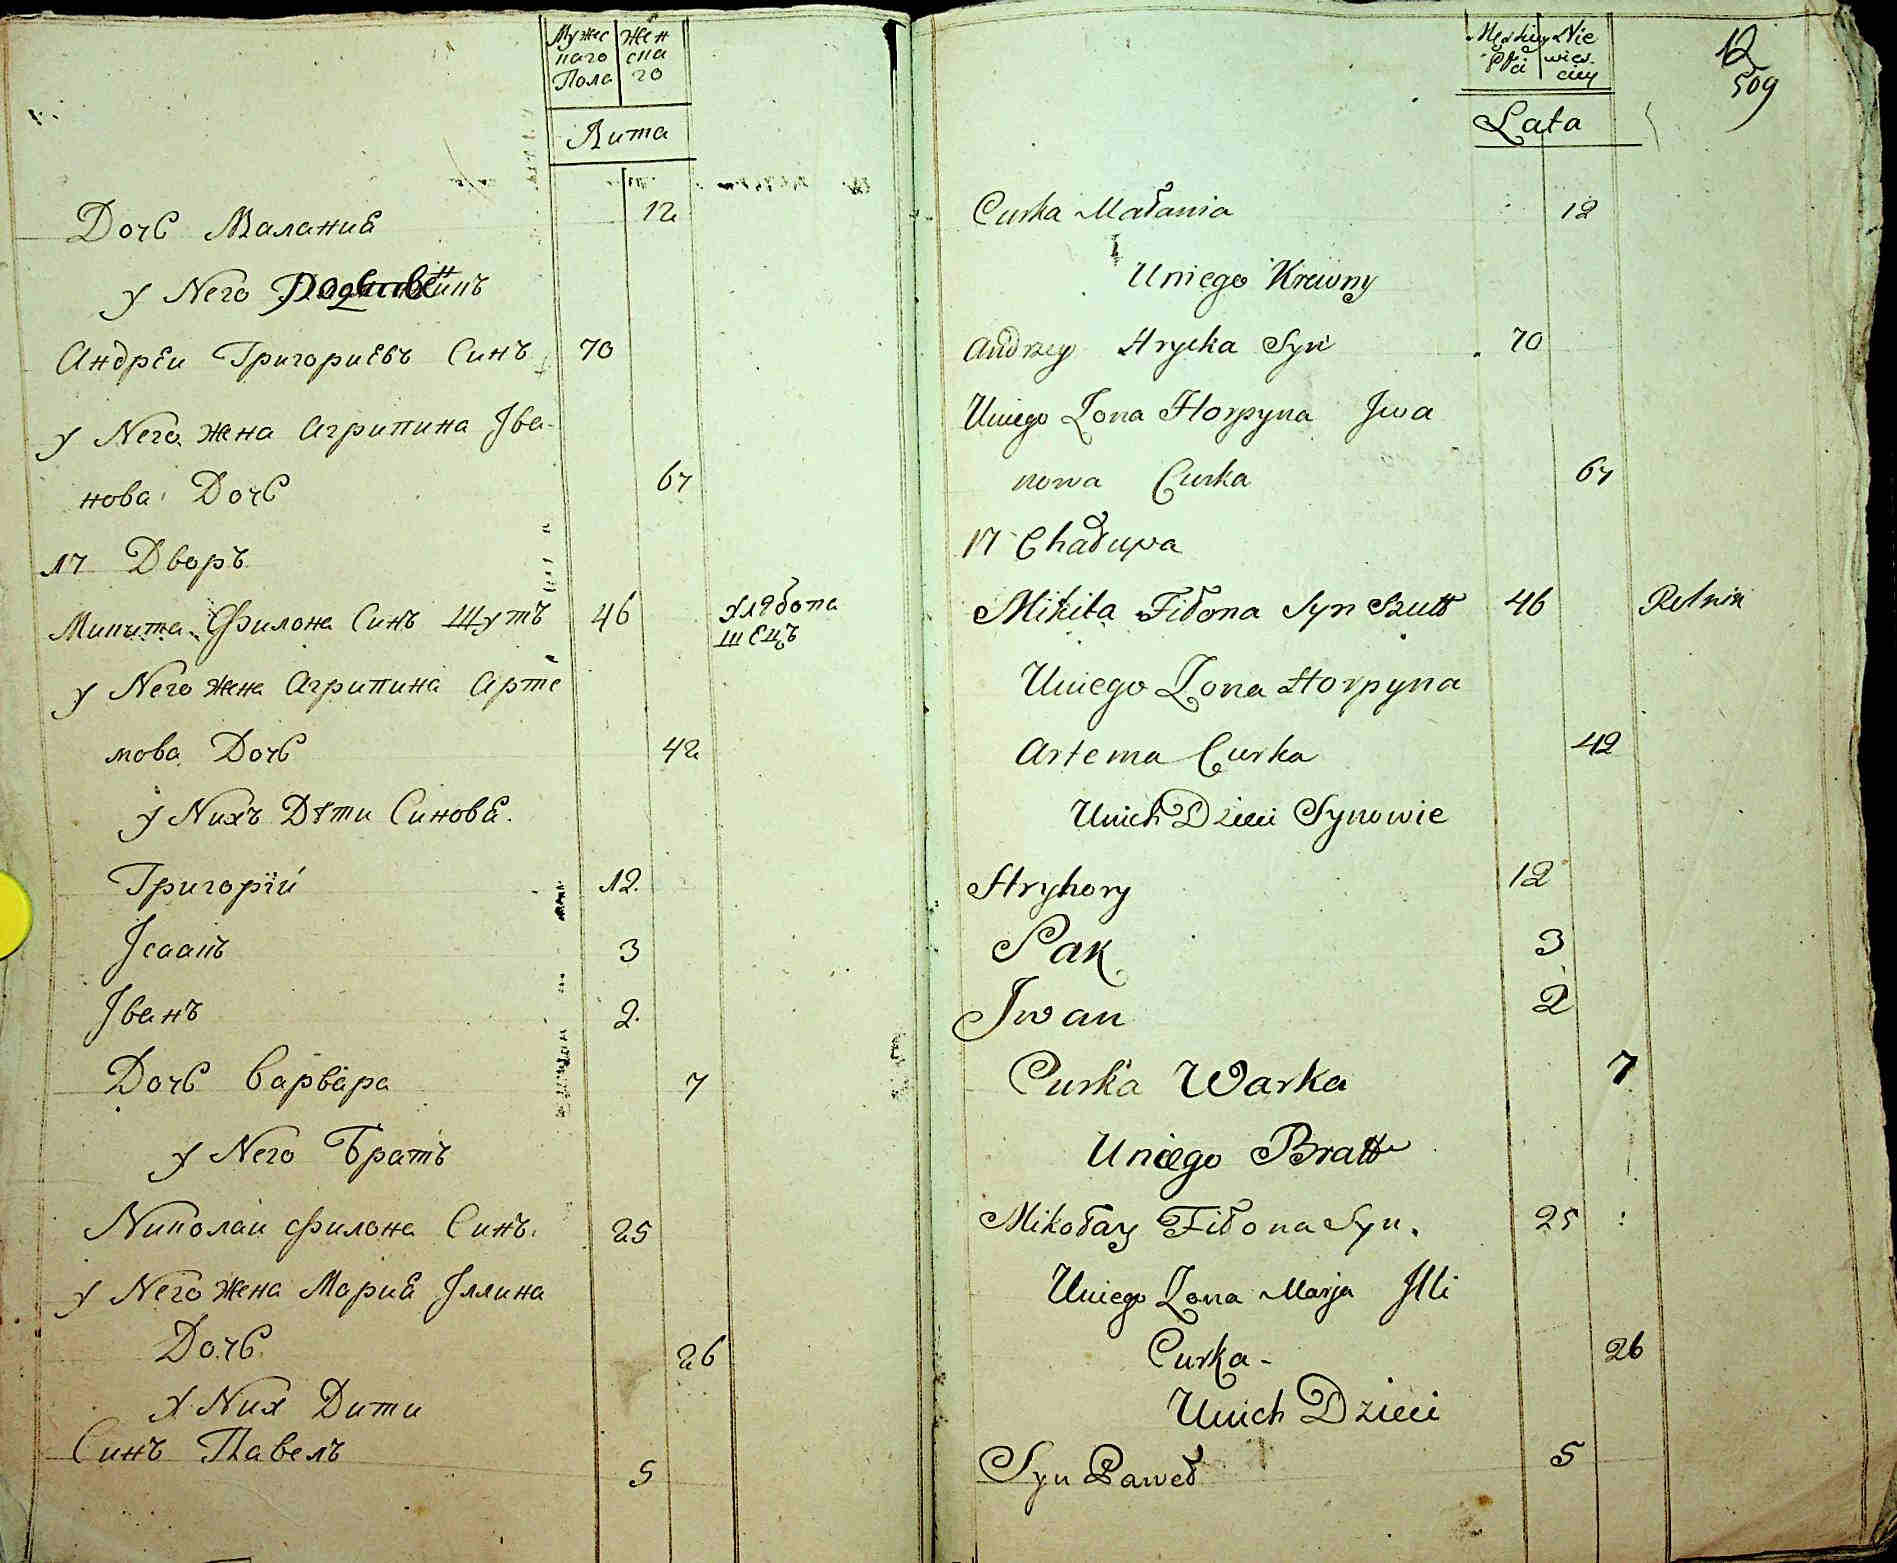 Мужес
каго
Пола
Жен
ска
го
Лита
Дочь Маланиѣ
12
у Него
Андрѣи Григориѣвъ Синъ 70
у Него жена Агрипина Iва-
нова Дочь 67
17 Дворъ
Микита Филона Синъ Шутъ 46 хлѣбопа
шецъ
у Него жена Агрипина Арте
мова Дочь 42
у Нихъ Дѣти Синовѣ.
Григорїй 12
Iсаакъ 3
Iванъ 2
Дочь Варвара 7
у Него Братъ
Николаи Филона Синъ. 25
у Него жена Мариѣ Iллина
Дочь 26
у Них Дити
Синъ Павелъ 5
Męskiey
Płci
Nie
wies
ciey
12
509
Lata
Curka Małania 12
Uniego Krewny
Andrzey Hrycka Syn 70
Uniego Zona Horpyna Jwa
nowa Curka 67
17 Chałupa
Mikita Fiłona Syn Szutt 46 Rolnik
Uniego Zona Horpyna
Artema Curka 42
Unich Dzieci Synowie
Hryhory 12
Sak 3
Jwan 2
Curka Warka 7
Uniego Bratt
Mikołay Fiłona Syn. 25
Uniego Zona Marja Jlli
Curka - 26
Unich Dzieci
Syn Paweł 5